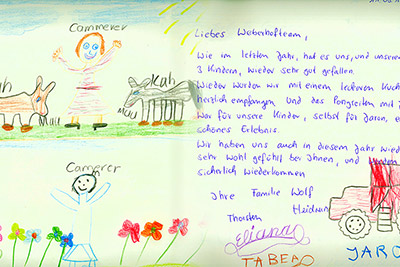 Cammerer
Kuh
Kuh
Muu
Muu
Camerer
Liebes Weberhofteam,
Wie im letzten Jahr, hat es uns, und unseren
3 Kindern, wieder sehr gut gefallen.
Wieder wurden wir mit einem leckeren Kuchen
herzlich empfangen und das Ponyreiten mit
War für unsere Kinder, selbst für Jaron, ein
schönes Erlebnis.
Wir haben uns auch in diesem Jahr wieder
sehr wohl gefühlt bei Ihnen, und werden
sicherlich wiederkommen
Ihre Familie Wolf
Thorsten
Elianna
TABEA
JARO